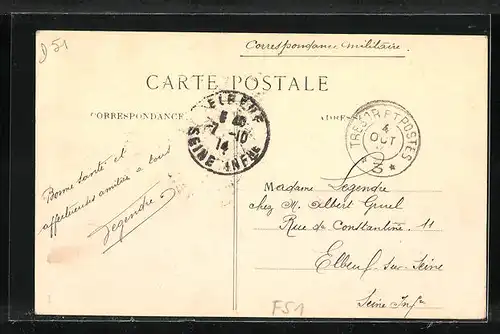 251
Correspondance militaire.
CARTE POSTALE
CORRESPONDANCE
ADRESSE
ELBEUF
7 -10
14
SEINE INFRE
TRESOR ET POSTES
4
OCT
* 3 *
Bonne santé et
affectueuses amitiés à tous
Legendre
Madame Legendre
chez M. Albert Gruel
Rue de Constantine. 11
Elbeuf-sur-Seine
Seine Infre
FS1